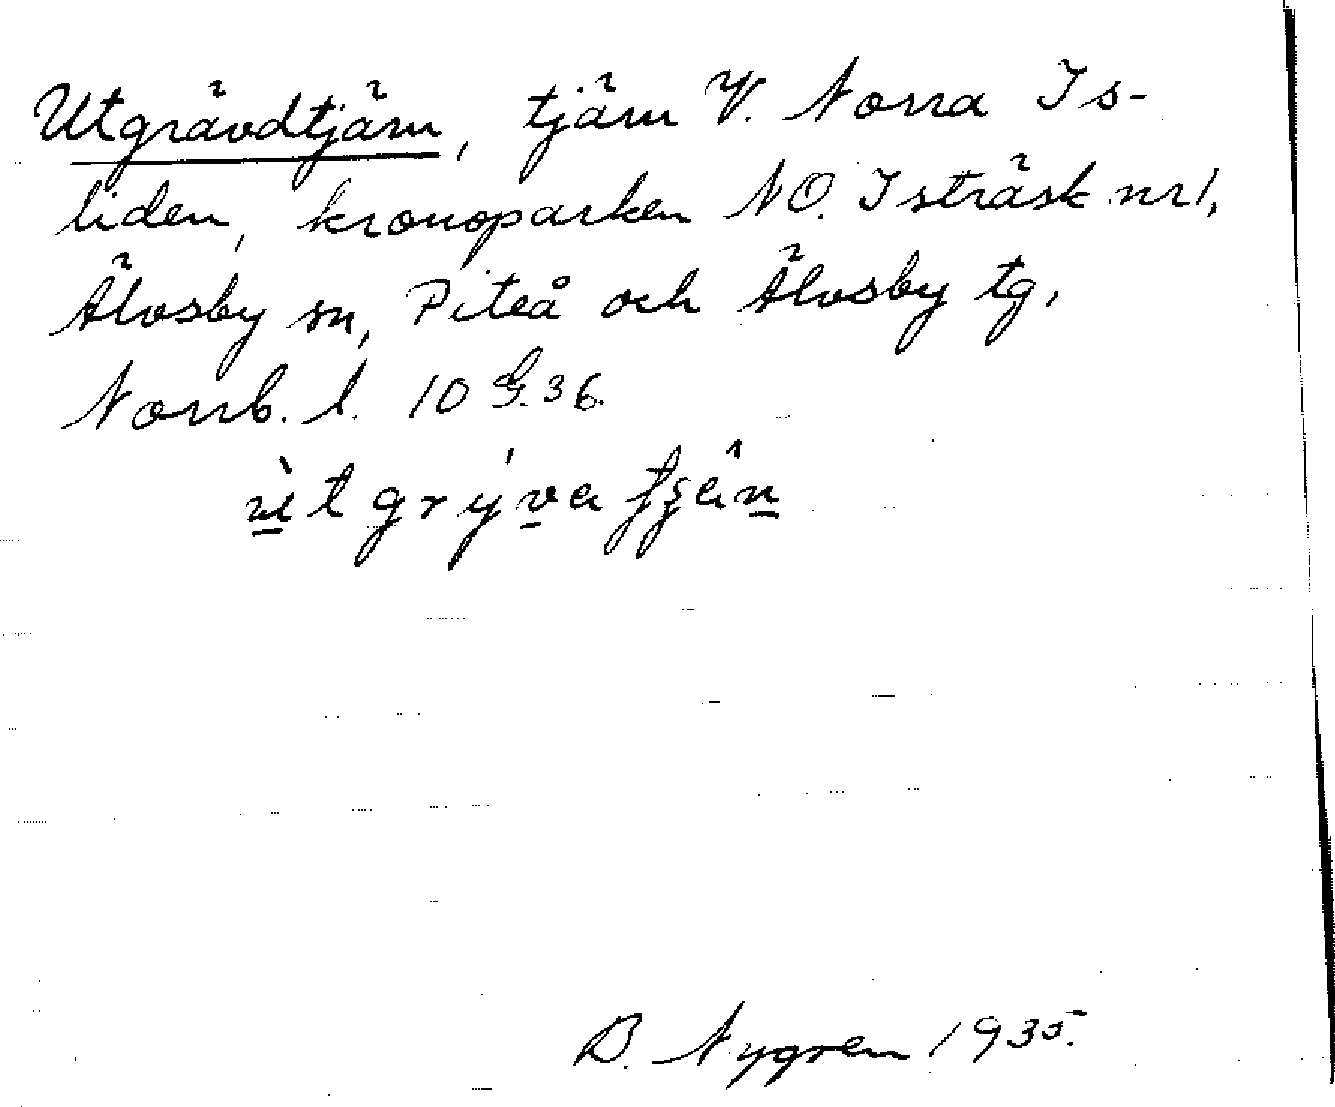 Utgrävdtjärn, tjärn V. Norra Is-
liden, kronoparken NO. Isträsk nr 1,
Älvsby sn, Piteå och Älvsby tg,
Norrb. l. 10 G. 36.
B. Nygren 1935.